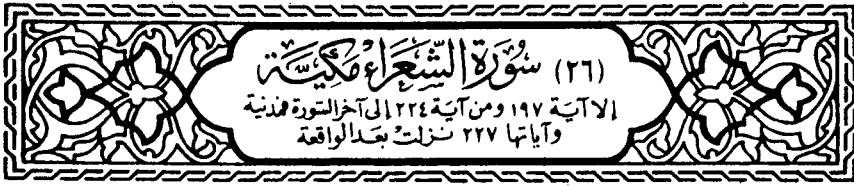 (٢٦) سُورَة الشُّعَرَاءِ مَكِيَّة
إلا آية ١٩٧ ومن آية ٢٢٤ إلى آخر السورة فمدنية
وآياتها ٢٢٧ نزلت بعد الواقعة